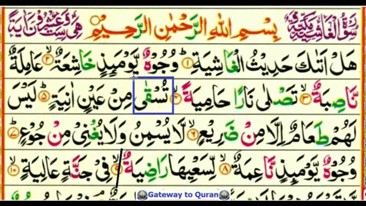 سُوْرَةُ الْغَاشِيَةِ مَكِّيَّةٌ بِسْمِ اللّٰهِ الرَّحْمٰنِ الرَّحِيْمِ
هَلْ اَتٰىكَ حَدِيْثُ الْغَاشِيَةِ ۝۱ وُجُوْهٌ يَّوْمَىِٕذٍ خَاشِعَةٌ ۝۲ عَامِلَةٌ
نَّاصِبَةٌ ۝۳ تَصْلٰى نَارًا حَامِيَةً ۝۴ تُسْقٰى مِنْ عَيْنٍ اٰنِيَةٍ ۝۵ لَيْسَ
لَهُمْ طَعَامٌ اِلَّا مِنْ ضَرِيْعٍ ۝۶ لَّا يُسْمِنُ وَلَا يُغْنِيْ مِنْ جُوْعٍ ۝۷
وُجُوْهٌ يَّوْمَىِٕذٍ نَّاعِمَةٌ ۝۸ لِّسَعْيِهَا رَاضِيَةٌ ۝۹ فِيْ جَنَّةٍ عَالِيَةٍ ۝۱۰
Gateway to Quran